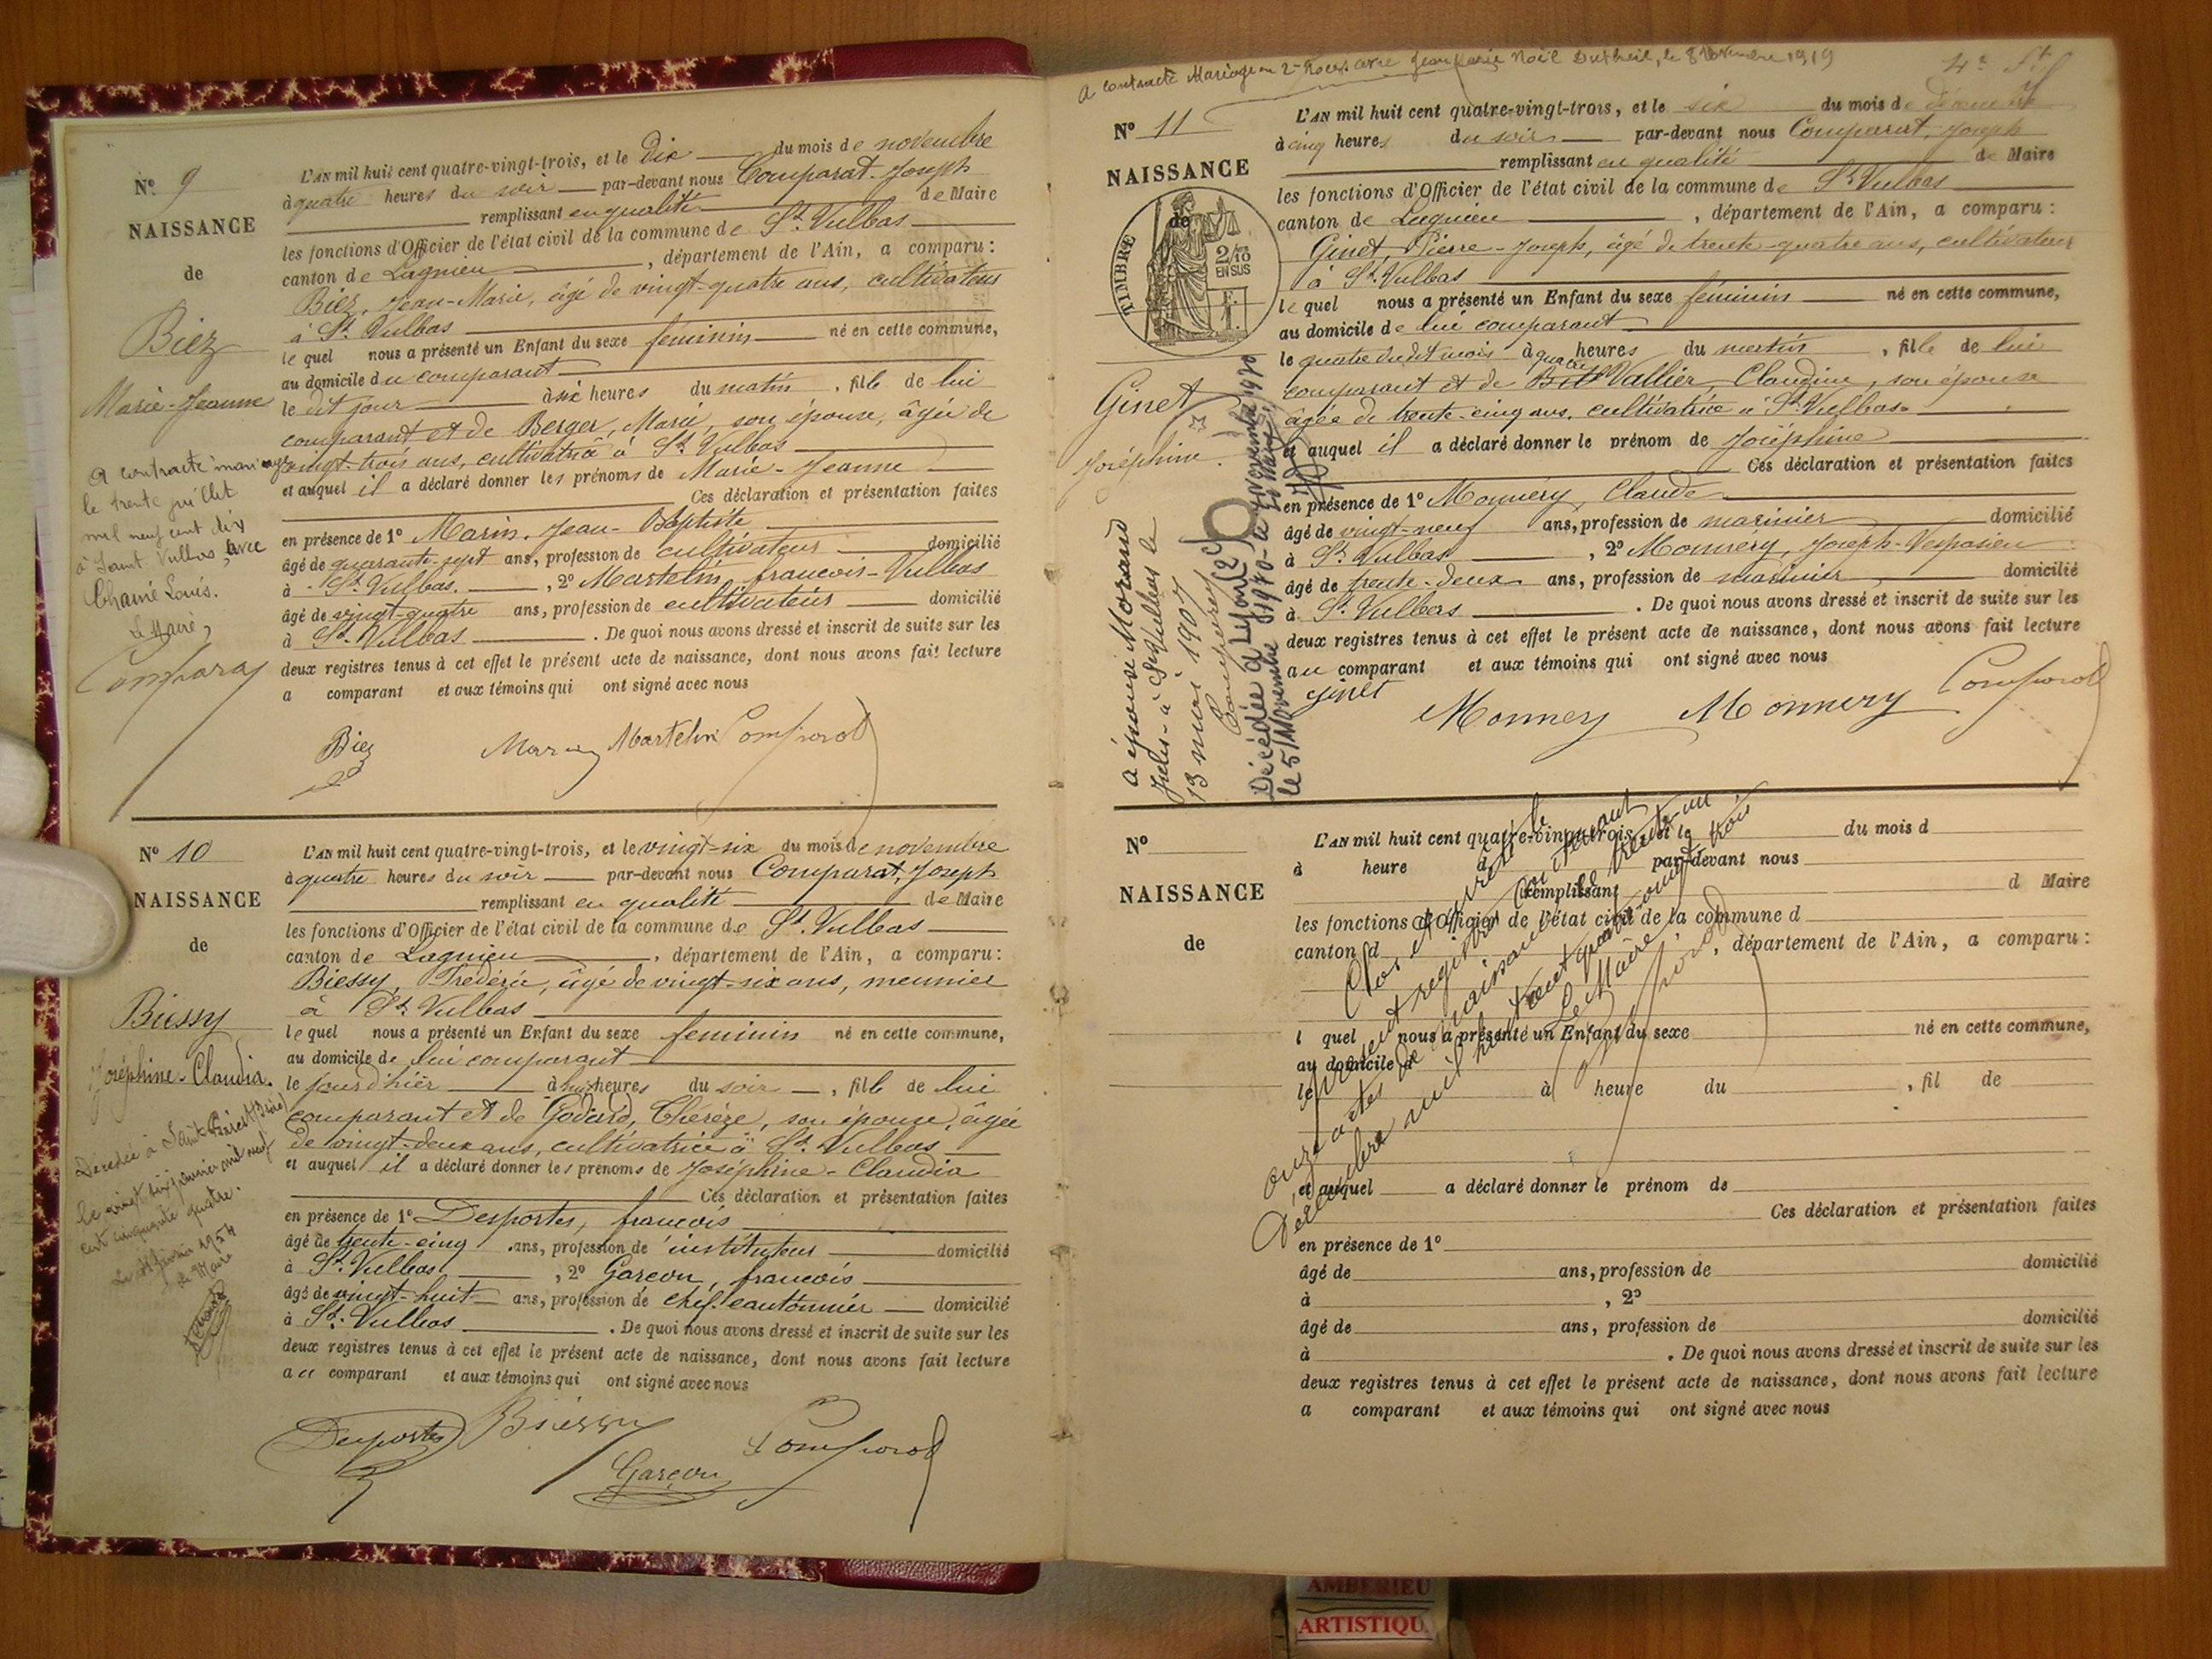 Nº 9
NAISSANCE
de
Biez
Marie-Jeanne
A contracté mariage
le trente juillet
mil neuf cent dix
à Saint Vulbas, avec
Chamé Louis.
Le Maire,
Comparat
L'AN mil huit cent quatre-vingt-trois, et le dix du mois de novembre
à quatre heures du soir par-devant nous Comparat Joseph
remplissant en qualité de Maire
les fonctions d'Officier de l'état civil de la commune de St Vulbas
canton de Lagnieu, département de l'Ain, a comparu:
Biez, Jean-Marie, âgé de vingt-quatre ans, cultivateur
à St Vulbas
lequel nous a présenté un Enfant du sexe féminin né en cette commune,
au domicile du comparant
le dit jour à six heures du matin, fille de lui
comparant et de Berger, Marie, son épouse, âgée de
vingt-trois ans, cultivatrice à St Vulbas
et auquel il a déclaré donner les prénoms de Marie-Jeanne
Ces déclaration et présentation faites
en présence de 1º Marin, Jean-Baptiste
âgé de quarante-sept ans, profession de cultivateur domicilié
à St Vulbas, 2º Martelin, francois-Vulbas
âgé de vingt-quatre ans, profession de cultivateur domicilié
à St Vulbas. De quoi nous avons dressé et inscrit de suite sur les
deux registres tenus à cet effet le présent acte de naissance, dont nous avons fait lecture
a comparant et aux témoins qui ont signé avec nous
Biez Marin Martelin Comparat
Nº 10
NAISSANCE
de
Biessy
Joséphine-Claudia.
Décédée à Saint
le vingt six janvier mil neuf
cent cinquante quatre.
Le février 1954
Le Maire
L'AN mil huit cent quatre-vingt-trois, et le vingt-six du mois de novembre
à quatre heures du soir par-devant nous Comparat, Joseph
remplissant en qualité de Maire
les fonctions d'Officier de l'état civil de la commune de St Vulbas
canton de Lagnieu, département de l'Ain, a comparu:
Biessy, Frédéric, âgé de vingt-six ans, meunier
à St Vulbas
lequel nous a présenté un Enfant du sexe féminin né en cette commune,
au domicile de lui comparant
le jour d'hier à huit heures du soir, fille de lui
comparant et de Godard, Thérèze, son épouse, âgée
de vingt-deux ans, cultivatrice à St Vulbas
et auquel il a déclaré donner les prénoms de Joséphine-Claudia
Ces déclaration et présentation faites
en présence de 1º Desportes, francois
âgé de trente-cinq ans, profession de instituteur domicilié
à St Vulbas, 2º Garcon, francois
âgé de vingt-huit ans, profession de chef cantonnier domicilié
à St Vulbas. De quoi nous avons dressé et inscrit de suite sur les
deux registres tenus à cet effet le présent acte de naissance, dont nous avons fait lecture
au comparant et aux témoins qui ont signé avec nous
Desportes Biessy Garcon Comparat
A contracté Mariage en 2es noces avec Jean Marie Noël Dutheil, le 8 Novembre 1919
Nº 11
NAISSANCE
de
TIMBRE
2/10
EN SUS
Ginet
Joséphine.
a épousé Morand
Jules à St Vulbas le
13 mars 1907
Comparat
Décédée à Lyon (2e)
le 5 Novembre 1970
L'AN mil huit cent quatre-vingt-trois, et le six du mois de décembre
à cinq heures du soir par-devant nous Comparat, Joseph
remplissant en qualité de Maire
les fonctions d'Officier de l'état civil de la commune de St Vulbas
canton de Lagnieu, département de l'Ain, a comparu:
Ginet, Pierre-Joseph, âgé de trente-quatre ans, cultivateur
à St Vulbas
lequel nous a présenté un Enfant du sexe féminin né en cette commune,
au domicile de lui comparant
le quatre dudit mois à quatre heures du matin, fille de lui
comparant et de Vallier, Claudine, son épouse
âgée de trente-cinq ans, cultivatrice à St Vulbas
et auquel il a déclaré donner le prénom de Joséphine
Ces déclaration et présentation faites
en présence de 1º Monnéry, Claude
âgé de vingt-neuf ans, profession de marinier domicilié
à St Vulbas, 2º Monnéry, Joseph-Vespasien
âgé de trente-deux ans, profession de marinier domicilié
à St Vulbas. De quoi nous avons dressé et inscrit de suite sur les
deux registres tenus à cet effet le présent acte de naissance, dont nous avons fait lecture
au comparant et aux témoins qui ont signé avec nous
Ginet Monnery Monnery Comparat
Nº
NAISSANCE
de
L'AN mil huit cent quatre-vingt-trois, et le du mois d
à heure d par-devant nous
remplissant d Maire
les fonctions d'Officier de l'état civil de la commune d
canton d, département de l'Ain, a comparu:
l quel nous a présenté un Enfant du sexe né en cette commune,
au domicile d
le à heure du, fil de
et auquel a déclaré donner le prénom de
Ces déclaration et présentation faites
en présence de 1º
âgé de ans, profession de domicilié
à, 2º
âgé de ans, profession de domicilié
à. De quoi nous avons dressé et inscrit de suite sur les
deux registres tenus à cet effet le présent acte de naissance, dont nous avons fait lecture
a comparant et aux témoins qui ont signé avec nous
Clos et arrêté le
présent registre contenant
onze actes de naissance le trente-un
Décembre mil huit cent quatre-vingt-trois
Le Maire
Comparat
AMBERIEU
ARTISTIQU